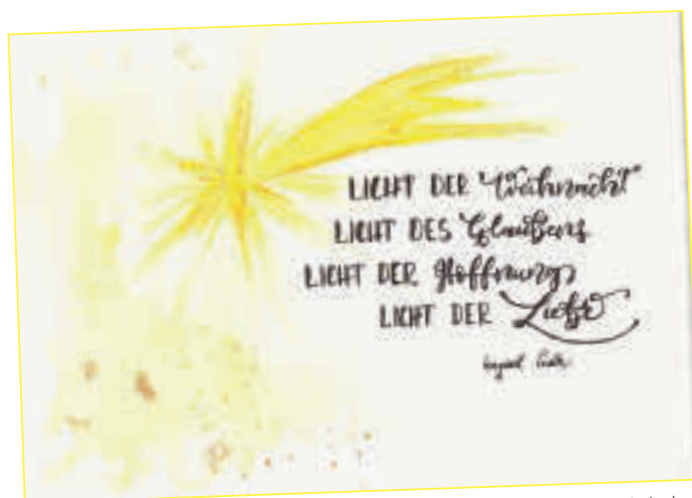 LICHT DER Weihnacht
LICHT DES Glaubens
LICHT DER Hoffnung
LICHT DER Liebe